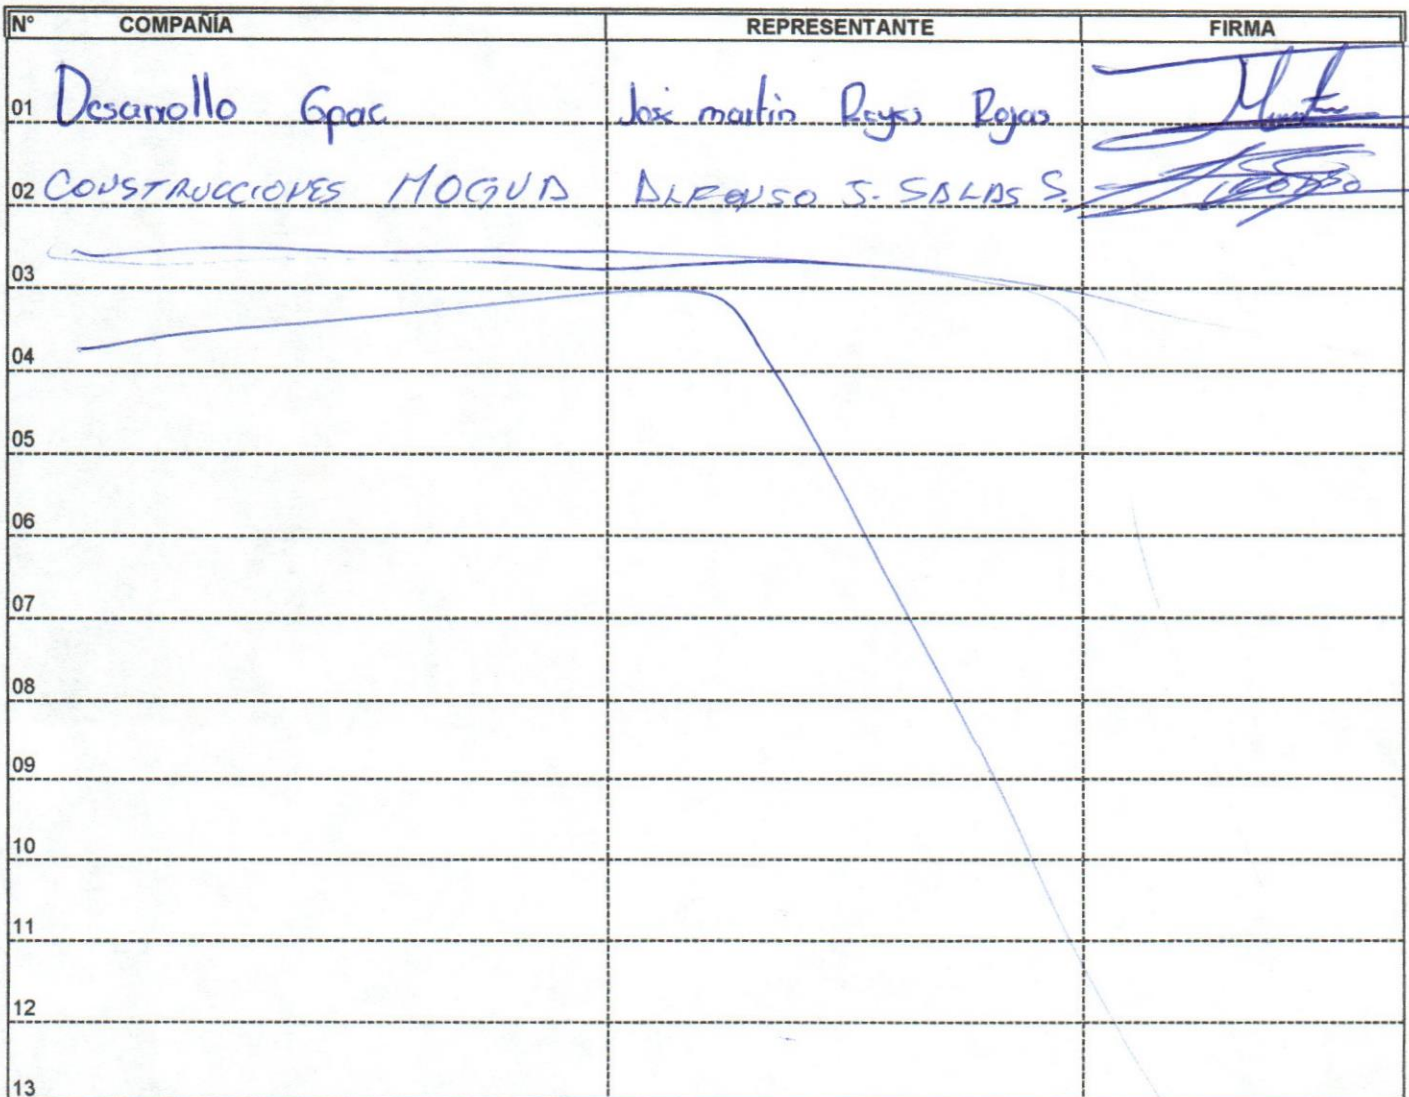 N° COMPAÑÍA REPRESENTANTE FIRMA
01 Desarrollo Gpac José martin Reyes Rojas
02 CONSTRUCCIONES MOGUA ALFONSO J. SALAS S.
03
04
05
06
07
08
09
10
11
12
13